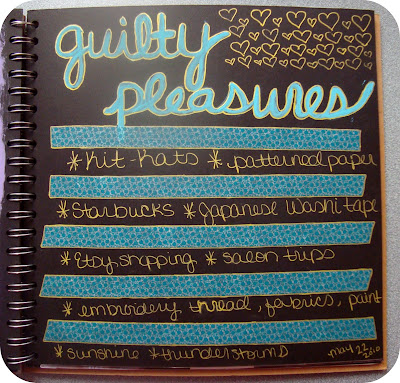 guilty
pleasures
*Kit-Kats *patterned paper
*Starbucks *Japanese Washi tape
*Etsy shopping *salon trips
*embroidery thread, fabrics, paint
*sunshine *thunderstorms
may 27
2010